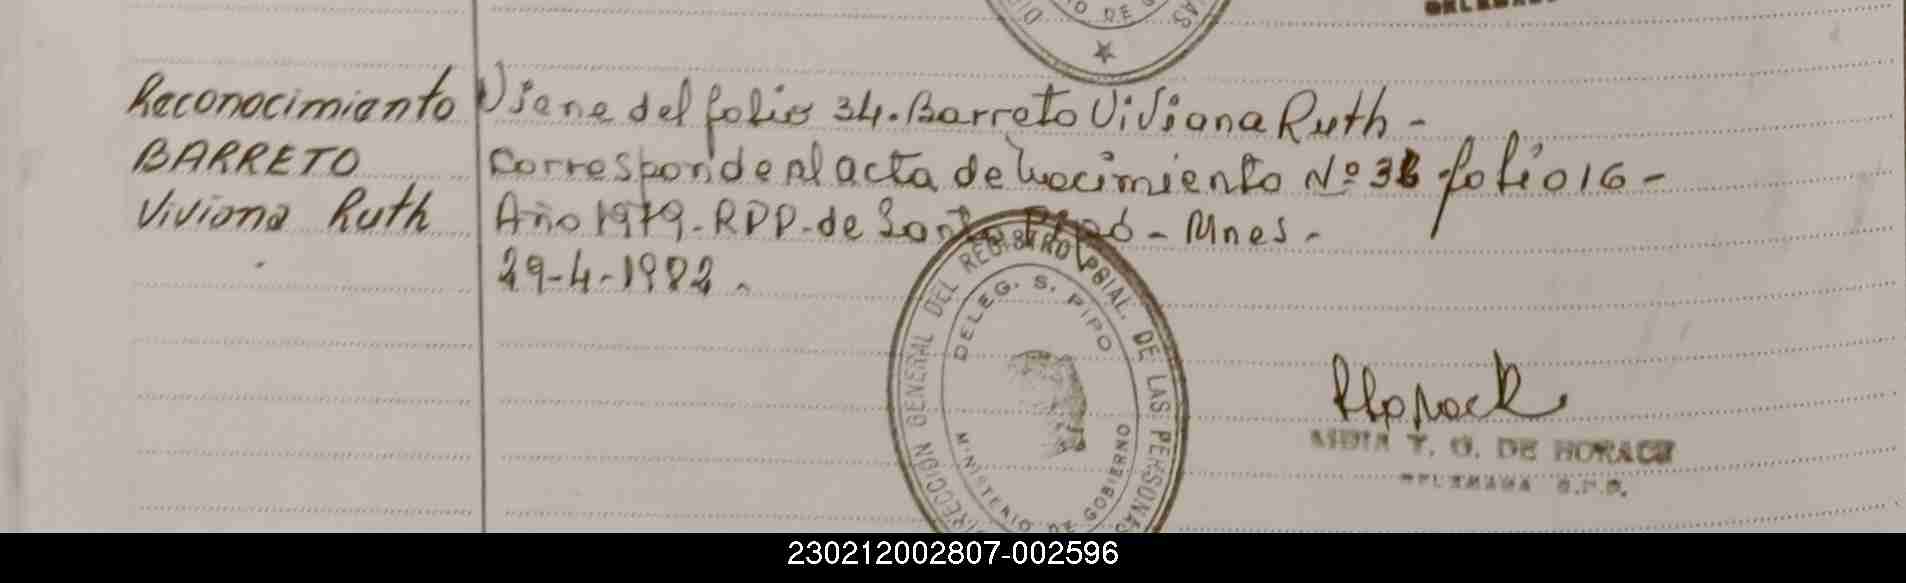 Reconocimianto
BARRETO
Viviana Ruth
Viene del folio 34. Barreto Viviana Ruth -
Corresponde al acta de Nacimiento Nº 36 folio 16 -
Año 1979 - RPP. de Santo Pipó - Mnes. -
29-4-1982.
DIRECCIÓN GENERAL DEL REGISTRO PCIAL. DE LAS PERSONAS
DELEG. S. PIPO
MINISTERIO DE GOBIERNO
T. G. DE HORACK
DELEGADA S.P.
230212002807-002596